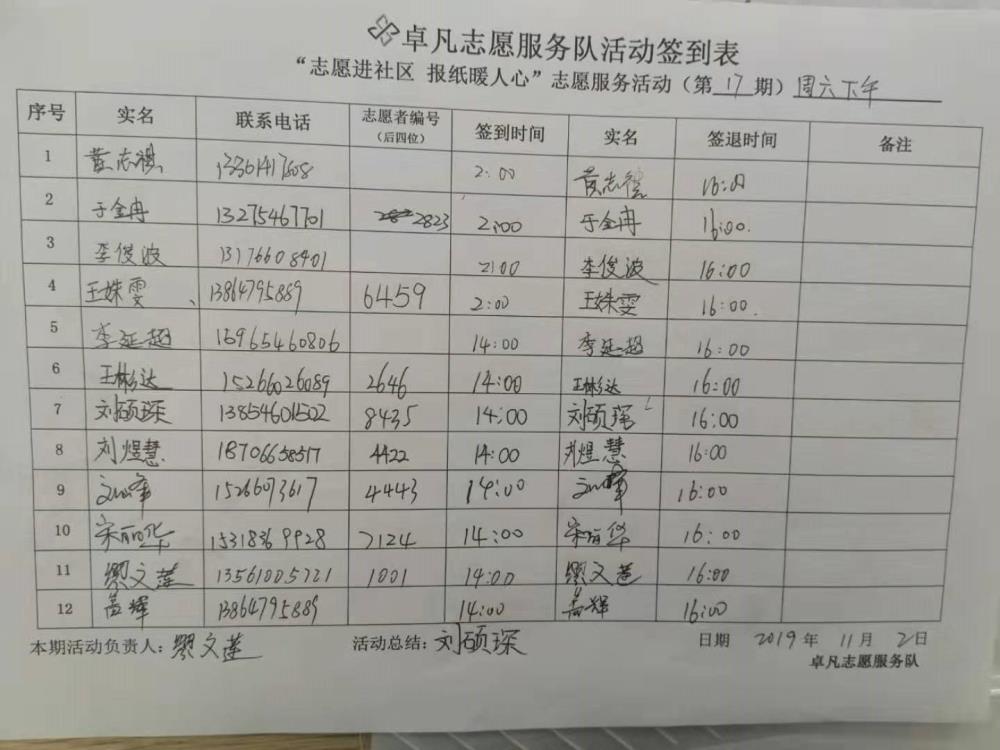 卓凡志愿服务队活动签到表
“志愿进社区 报纸暖人心”志愿服务活动（第 17 期）周六下午
序号 实名 联系电话 志愿者编号（后四位） 签到时间 实名 签退时间 备注
1 黄志 2:00 黄志 16:00
2 于金冉 13275467701 2823 2:00 于金冉 16:00.
3 李俊波 13176608401 2:00 李俊波 16:00
4 王姝雯 13864795889 6459 2:00 王姝雯 16:00.
5 李延超 13965460806 14:00 李延超 16:00
6 王彬达 15266026089 2646 14:00 王彬达 16:00
7 刘硕琛 13854601502 8435 14:00 刘硕琛 16:00
8 刘煜慧 18706658517 4422 14:00 刘煜慧 16:00
9 15266073617 4443 14:00 16:00
10 宋丽华 15318369928 7124 14:00 宋丽华 16:00
11 缪文莲 13561005721 1001 14:00 缪文莲 16:00
12 13864795889 14:00 16:00
本期活动负责人：缪文莲 活动总结：刘硕琛 日期 2019 年 11 月 2 日
卓凡志愿服务队